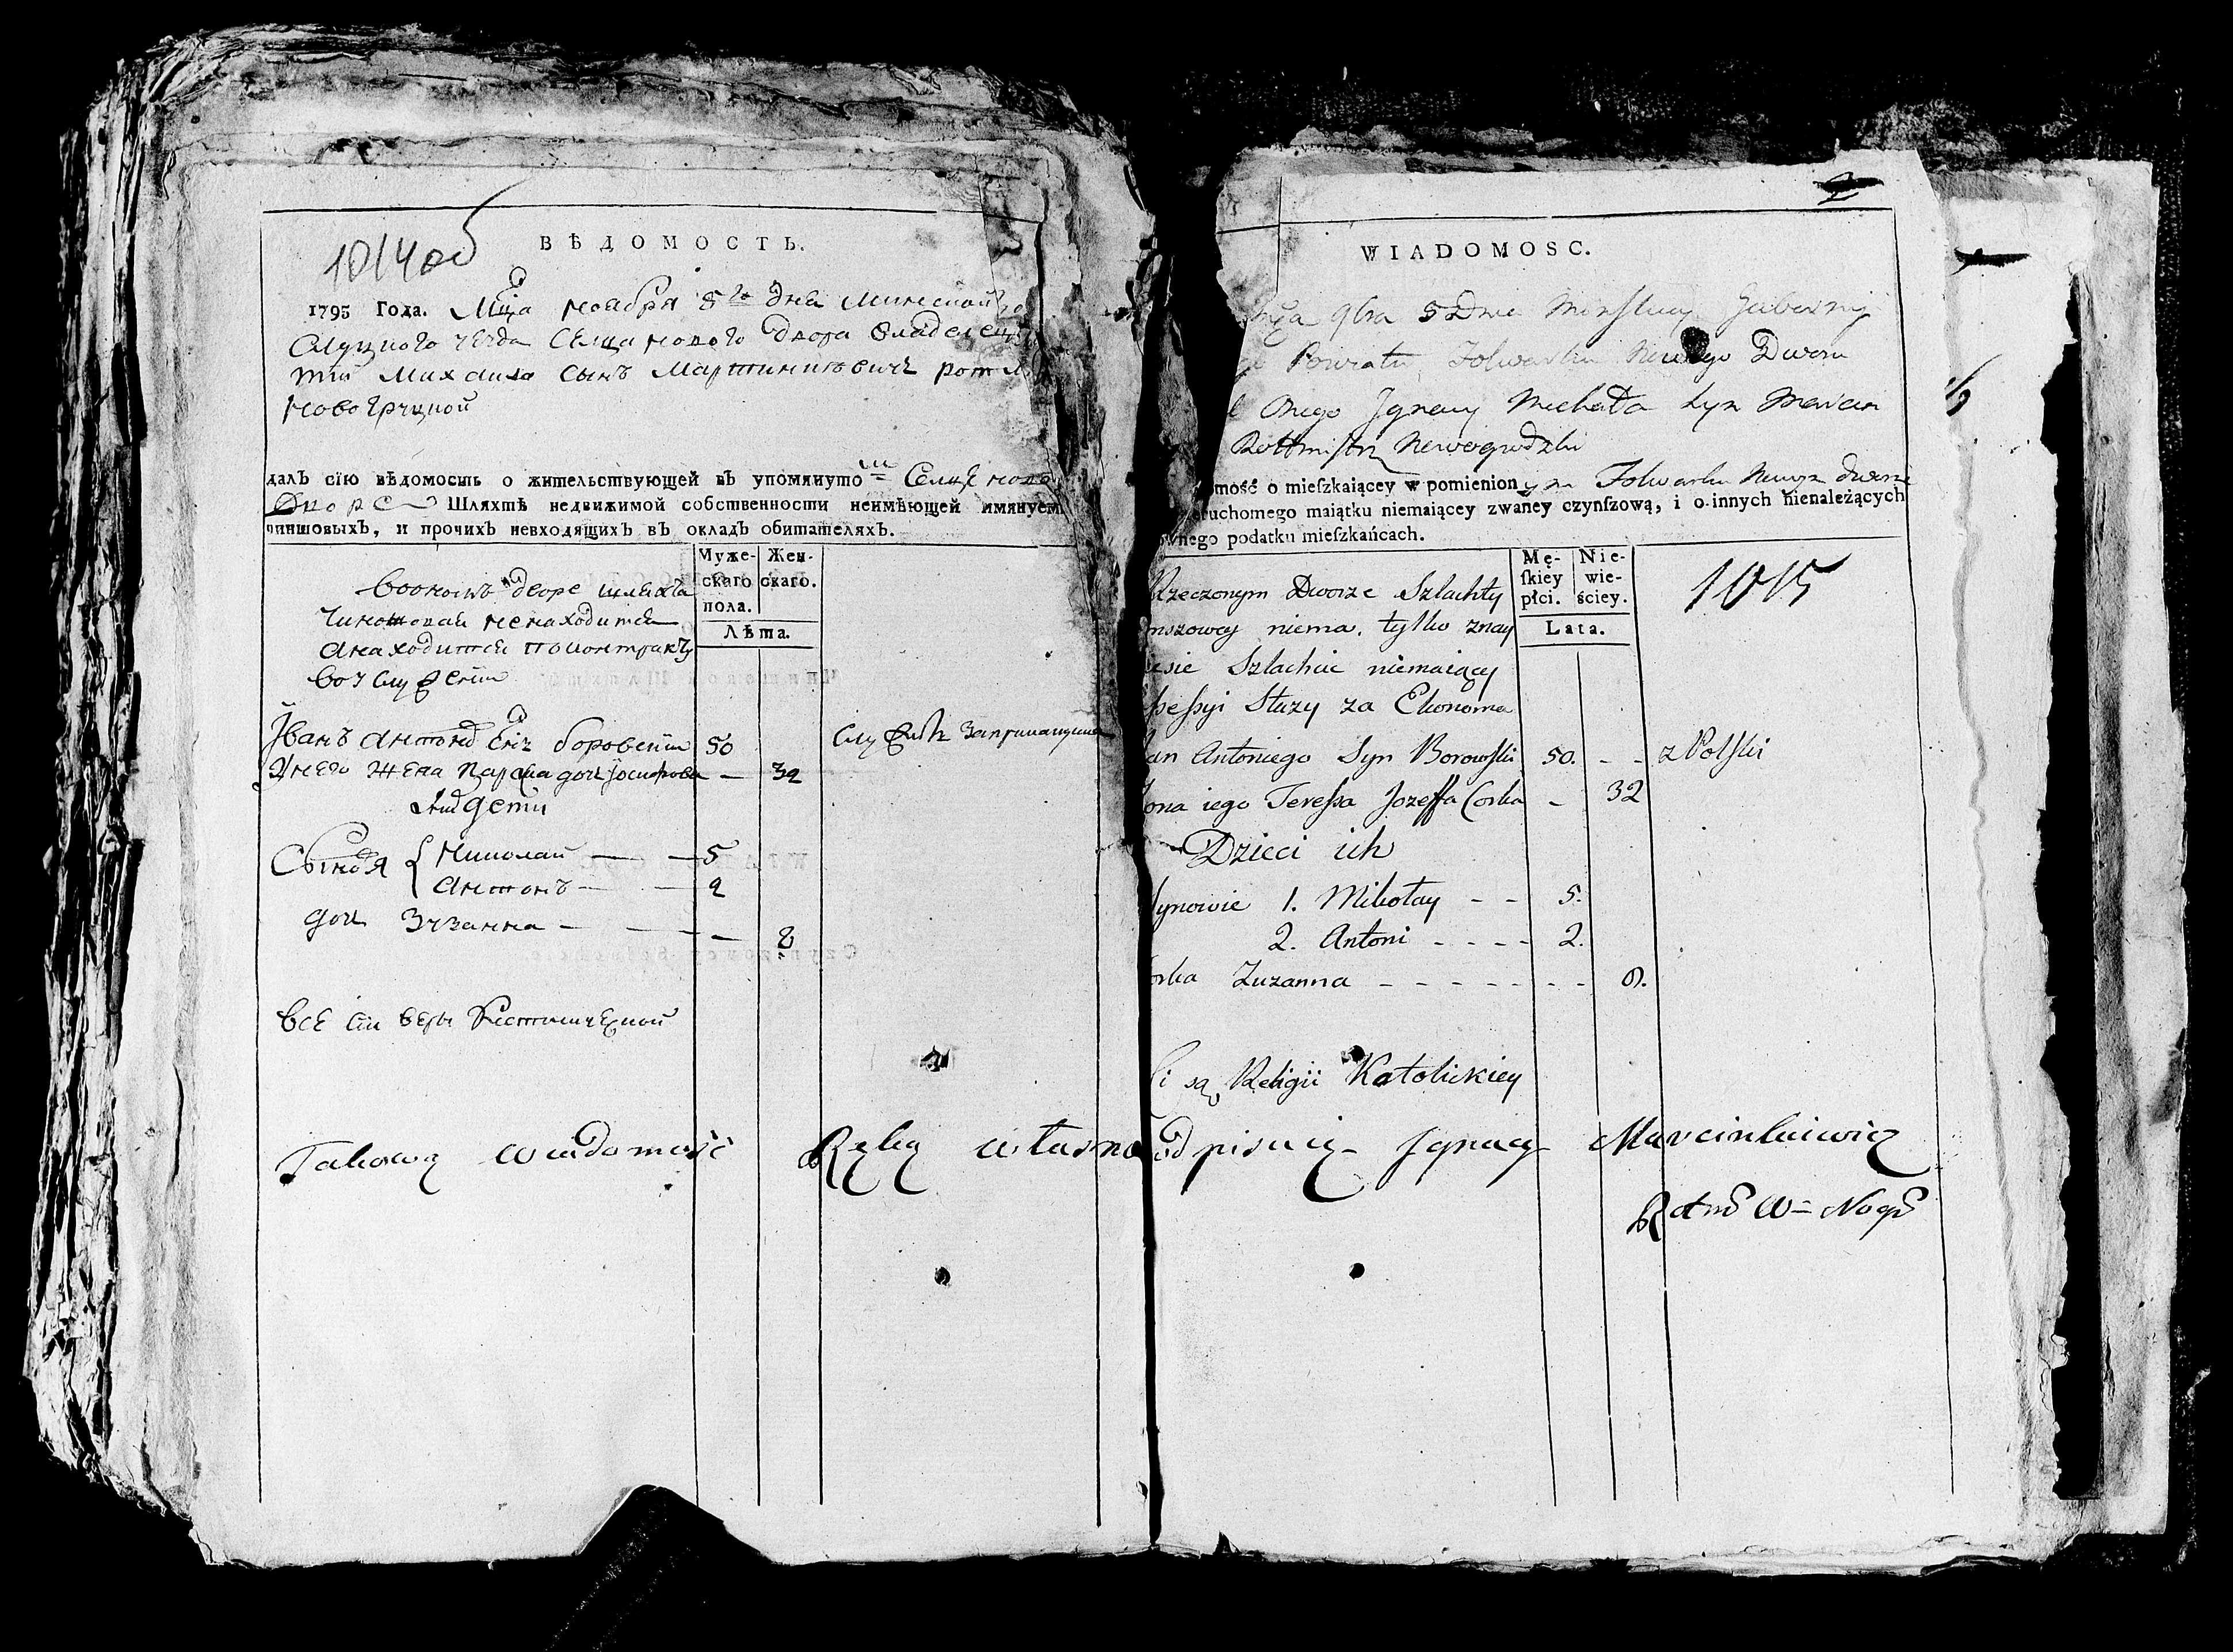 1014 об
ВѢДОМОСТЬ.
1795 Года. Мца ноября 5го дня Минской
Слуцкого уезда Селца нового двора владелец
Михаила сынъ Мартинкевичъ
новогруцкой
далъ сїю вѣдомость о жительствующей въ упомянутомъ Селце ново
Дворе Шляхтѣ недвижимой собственности неимѣющей имянуем
чиншовыхъ, и прочихъ невходящихъ въ окладъ обитателяхъ.
Муже- Жен-
скаго скаго.
пола.
Лѣта.
дворе шляхта
чиншовая ненаходится
анаходится поконтракту
воуслужении
Иванъ Антоновъ боровский 50
унего жена дочь Іосифова — 32
дети
Сыновья { Николай — — 5
Антонъ — — 2
дочь Зузанна — — — 8
все сии веры
служитъ
WIADOMOSC.
qbra 5 Dnia Minskiey Gubernij
Powiatu Folwarku Nowego Dworu
Onego Jgnacy Michała Syn Marcin
Rottmistrz Nowogrodzki
omość o mieſzkaiącey w pomienionym Folwarku Nowym dworze
ruchomego maiątku niemaiącey zwaney czynſzową, i o innych nienależących
wnego podatku mieſzkańcach.
Mę- Nie-
ſkiey wie-
płci. ściey.
Lata.
1015
Rzeczonym Dworze Szlachty
nszowey niema, tylko znay
iesie Szlachcic niemaiący
ssessyi Służy za Ekonoma
an Antoniego Syn Borowski 50. - - z Polski
ona iego Teressa Jozeffa Corka - 32
Dzieci ich
ynowie 1. Mikołay - - 5.
2. Antoni - - - - 2.
orka Zuzanna - - - - - - - 8.
i są Religii Katolickiey
Takową wiadomość Ręką własną podpisuię Jgnacy Marcinkiewicz
Rotm W= Nogr